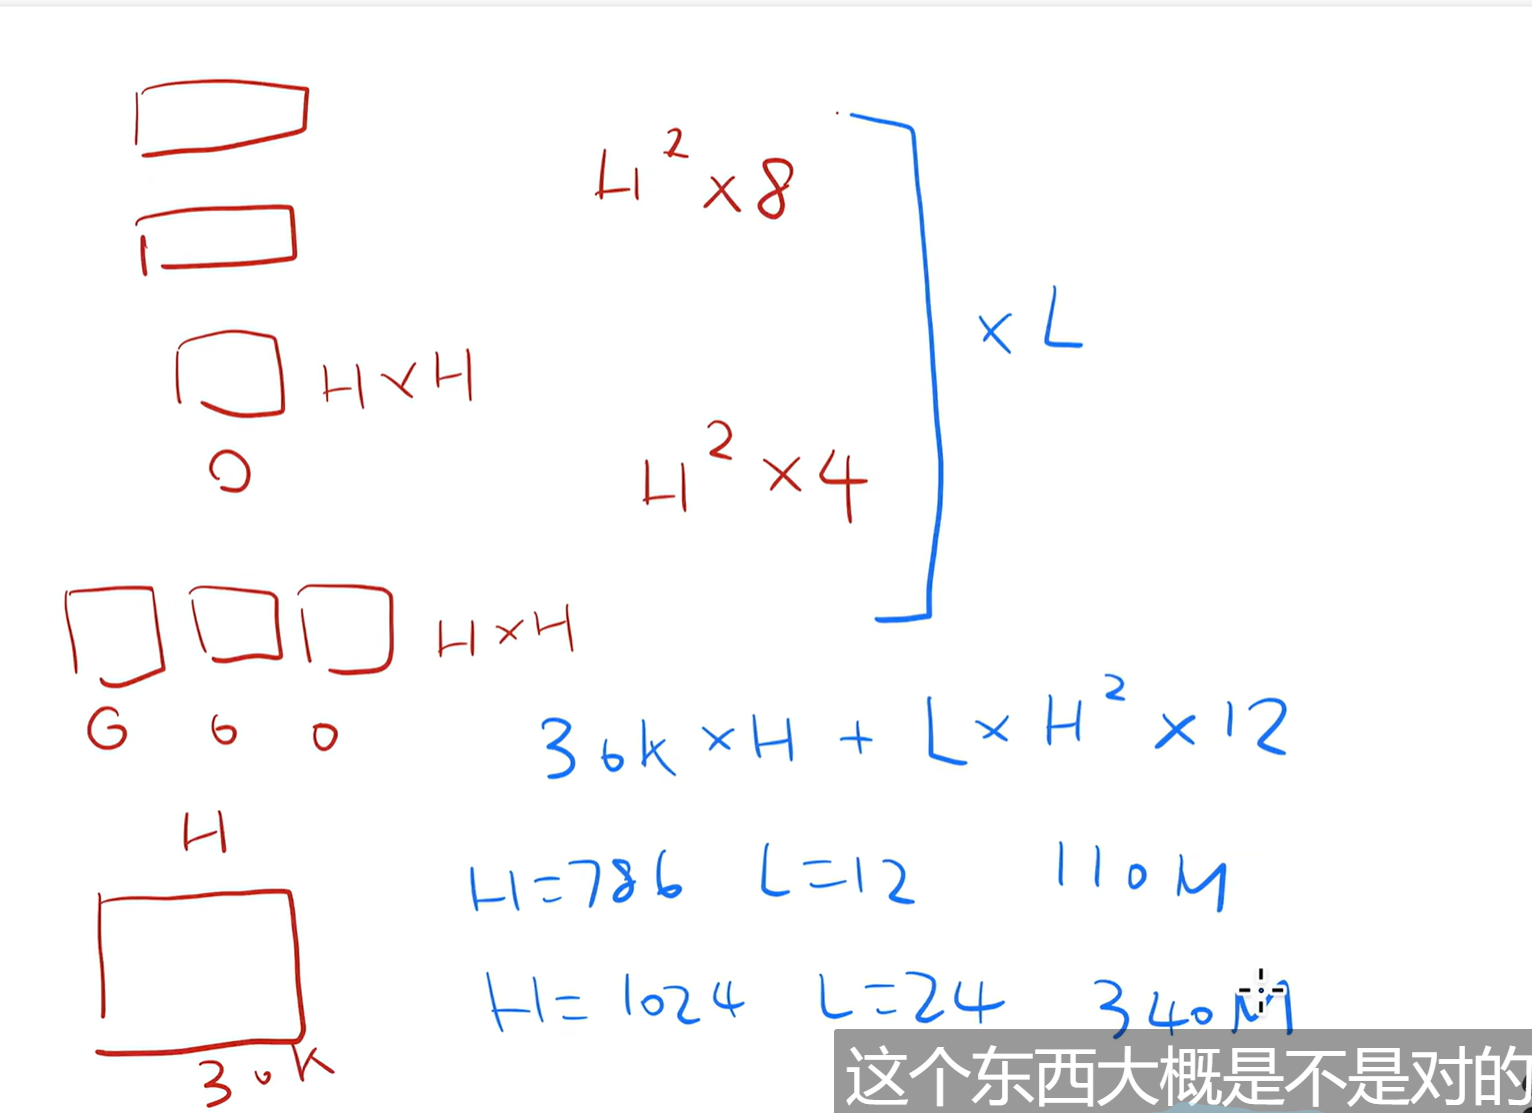 H² × 8
× L
H × H
O
H² × 4
H × H
G G O
30k × H + L × H² × 12
H
H = 786 L = 12 110M
H = 1024 L = 24 340M
30K
这个东西大概是不是对的